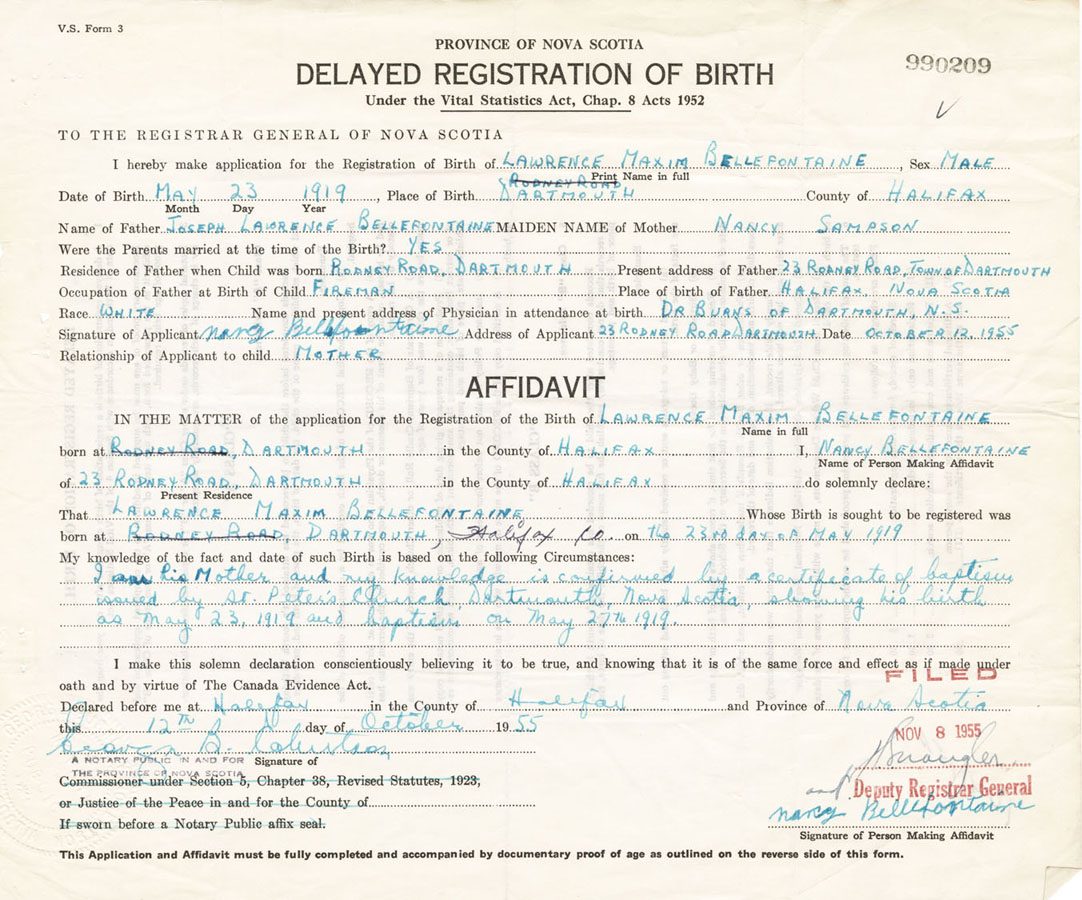 V.S. Form 3
PROVINCE OF NOVA SCOTIA
990209
DELAYED REGISTRATION OF BIRTH
Under the Vital Statistics Act, Chap. 8 Acts 1952
TO THE REGISTRAR GENERAL OF NOVA SCOTIA
I hereby make application for the Registration of Birth of LAWRENCE MAXIM BELLEFONTAINE, Sex MALE
Print Name in full
RODNEY ROAD
Date of Birth MAY 23 1919, Place of Birth DARTMOUTH County of HALIFAX
Month Day Year
Name of Father JOSEPH LAWRENCE BELLEFONTAINE MAIDEN NAME of Mother NANCY SAMPSON
Were the Parents married at the time of the Birth? YES
Residence of Father when Child was born RODNEY ROAD, DARTMOUTH Present address of Father 23 RODNEY ROAD, TOWN OF DARTMOUTH
Occupation of Father at Birth of Child FIREMAN Place of birth of Father HALIFAX, NOVA SCOTIA
Race WHITE Name and present address of Physician in attendance at birth DR BURNS OF DARTMOUTH, N.S.
Signature of Applicant Nancy Bellefountaine Address of Applicant 23 RODNEY ROAD DARTMOUTH Date OCTOBER 12, 1955
Relationship of Applicant to child MOTHER
AFFIDAVIT
IN THE MATTER of the application for the Registration of the Birth of LAWRENCE MAXIM BELLEFONTAINE
Name in full
born at RODNEY ROAD, DARTMOUTH in the County of HALIFAX I, NANCY BELLEFONTAINE
Name of Person Making Affidavit
of 23 RODNEY ROAD, DARTMOUTH in the County of HALIFAX do solemnly declare:
Present Residence
That LAWRENCE MAXIM BELLEFONTAINE Whose Birth is sought to be registered was
born at RODNEY ROAD, DARTMOUTH, Halifax Co. on the 23RD DAY OF MAY 1919
My knowledge of the fact and date of such Birth is based on the following Circumstances:
I am his Mother and my knowledge is confirmed by a certificate of baptism
issued by St. Peter's Church, Dartmouth, Nova Scotia, showing his birth
as May 23, 1919 and baptism on May 27th 1919.
I make this solemn declaration conscientiously believing it to be true, and knowing that it is of the same force and effect as if made under
oath and by virtue of The Canada Evidence Act.
FILED
Declared before me at Halifax in the County of Halifax and Province of Nova Scotia
this 12TH day of October 1955
NOV 8 1955
George B. Robertson
A NOTARY PUBLIC IN AND FOR Signature of
THE PROVINCE OF NOVA SCOTIA
Commissioner under Section 5, Chapter 38, Revised Statutes, 1923,
Deputy Registrar General
or Justice of the Peace in and for the County of
Nancy Bellefontaine
If sworn before a Notary Public affix seal.
Signature of Person Making Affidavit
This Application and Affidavit must be fully completed and accompanied by documentary proof of age as outlined on the reverse side of this form.